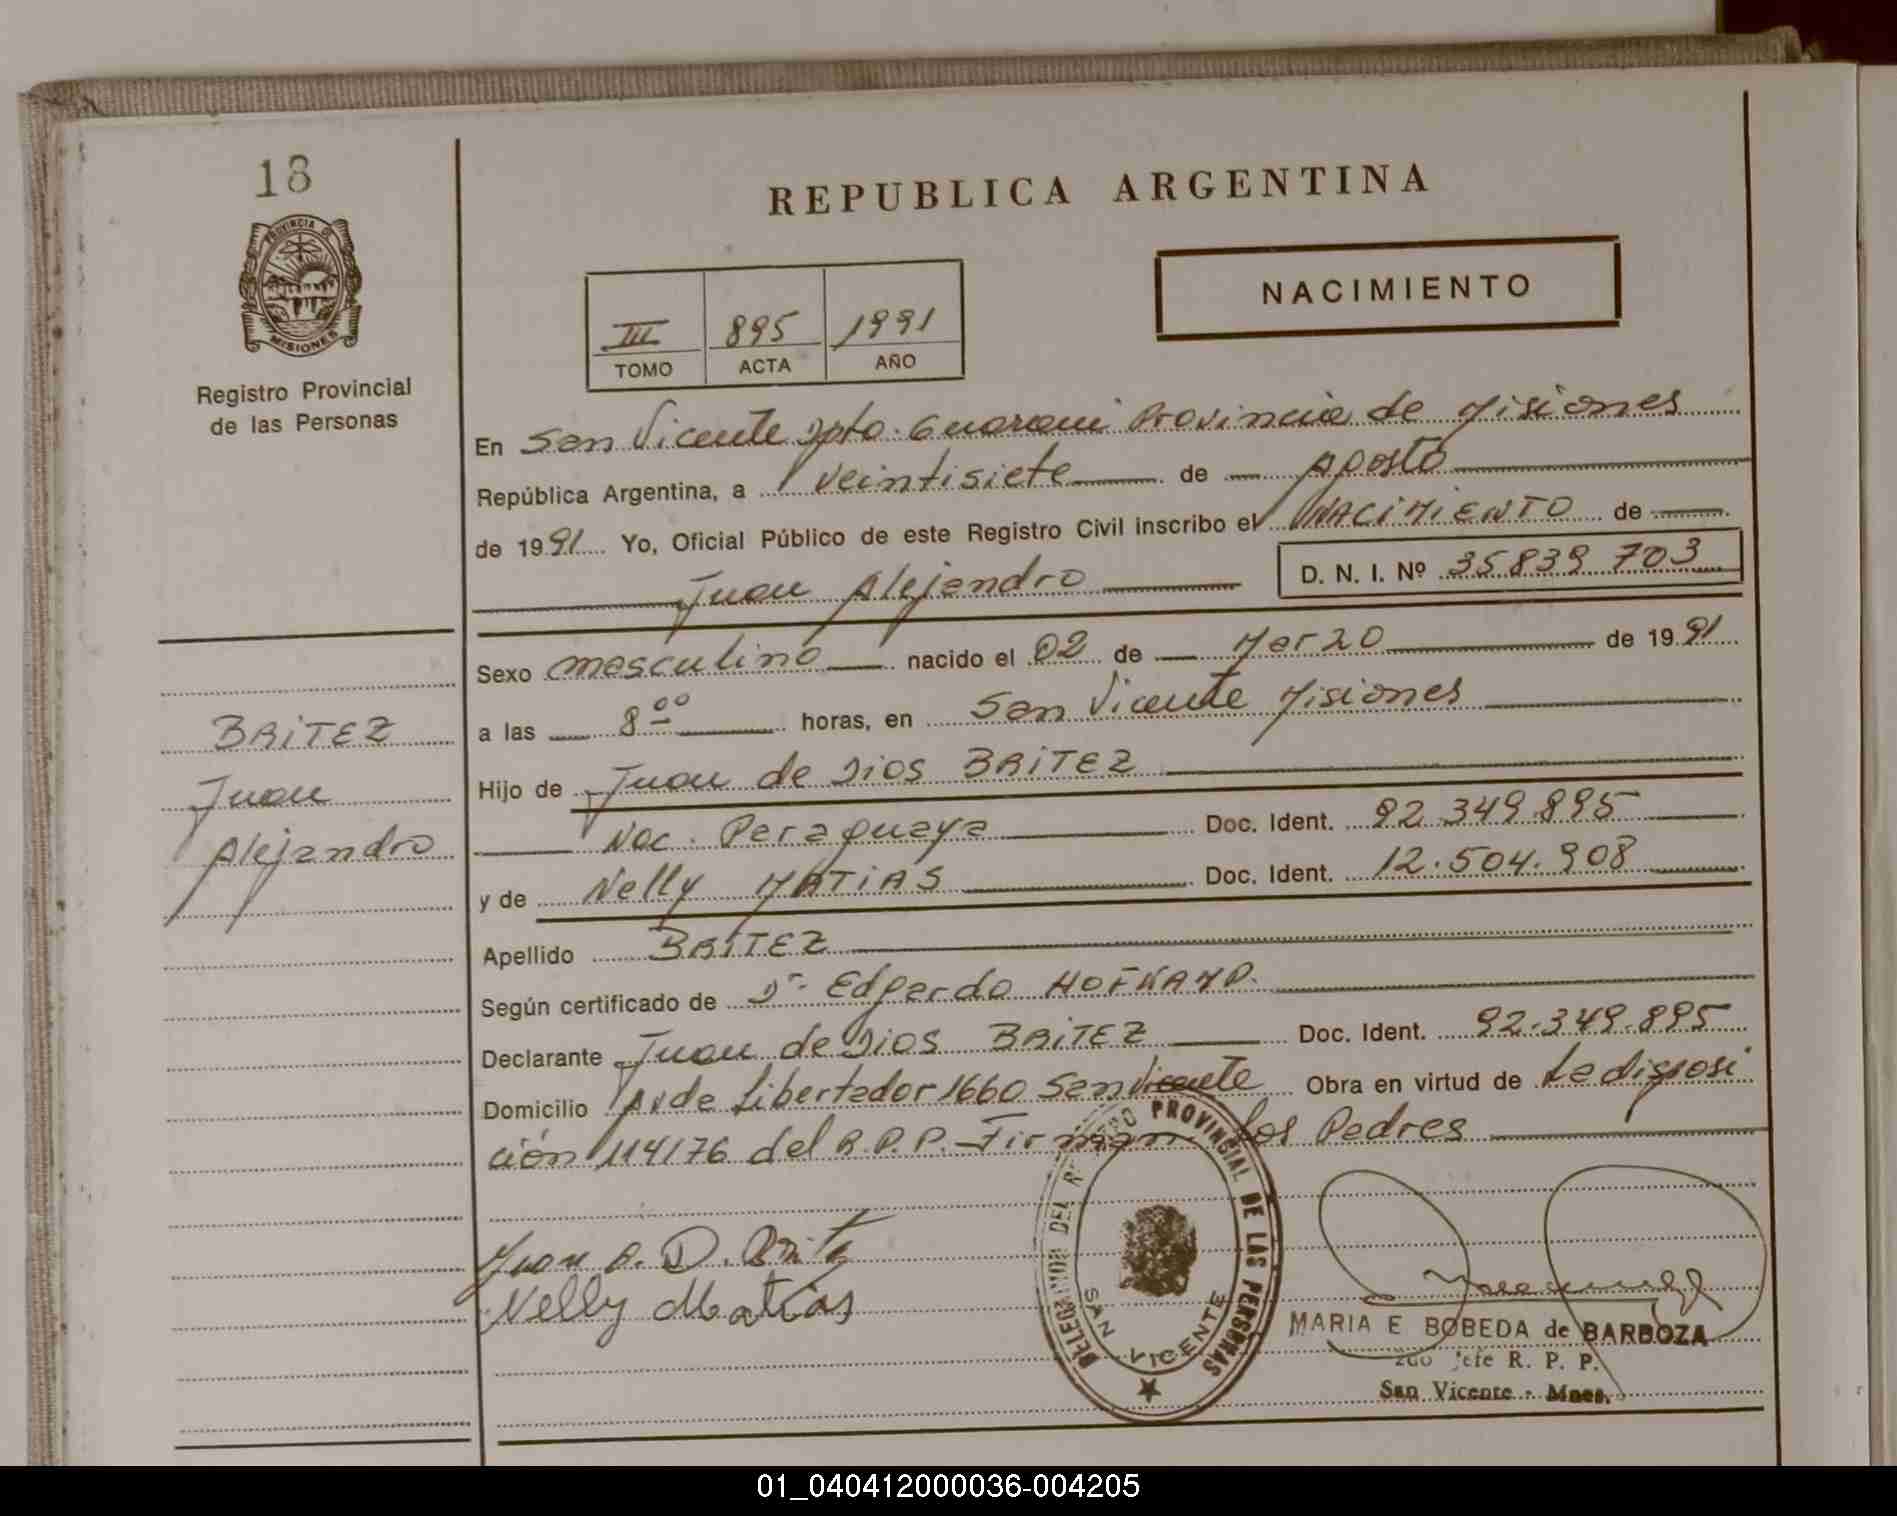 18
PROVINCIA DE
MISIONES
Registro Provincial
de las Personas
REPUBLICA ARGENTINA
NACIMIENTO
III 895 1991
TOMO ACTA AÑO
En San Vicente Dpto. Guarani Provincia de Misiones
República Argentina, a veintisiete de Agosto
de 1991 Yo, Oficial Público de este Registro Civil inscribo el NACIMIENTO de
Juan Alejandro D. N. I. Nº 35839703
Sexo masculino nacido el 02 de Marzo de 1991
a las 8 00 horas, en San Vicente Misiones
Hijo de Juan de Dios BRITEZ
Nac. Paraguaya Doc. Ident. 92.349.895
y de Nelly MATIAS Doc. Ident. 12.504.908
Apellido BRITEZ
Según certificado de Dr. Edgardo HOFKAMP.
Declarante Juan de Dios BRITEZ Doc. Ident. 92.349.895
Domicilio Avda Libertador 1660 San Vicente Obra en virtud de La disposi
ción 114/76 del R.P.P. Firman los Padres
BRITEZ
Juan
Alejandro
Juan D. D. Britz
Nelly Matias
DELEGACION DEL REGISTRO PROVINCIAL DE LAS PERSONAS
SAN VICENTE
MARIA E BOBEDA de BARBOZA
2do Jefe R. P. P.
San Vicente - Mnes.
01_040412000036-004205